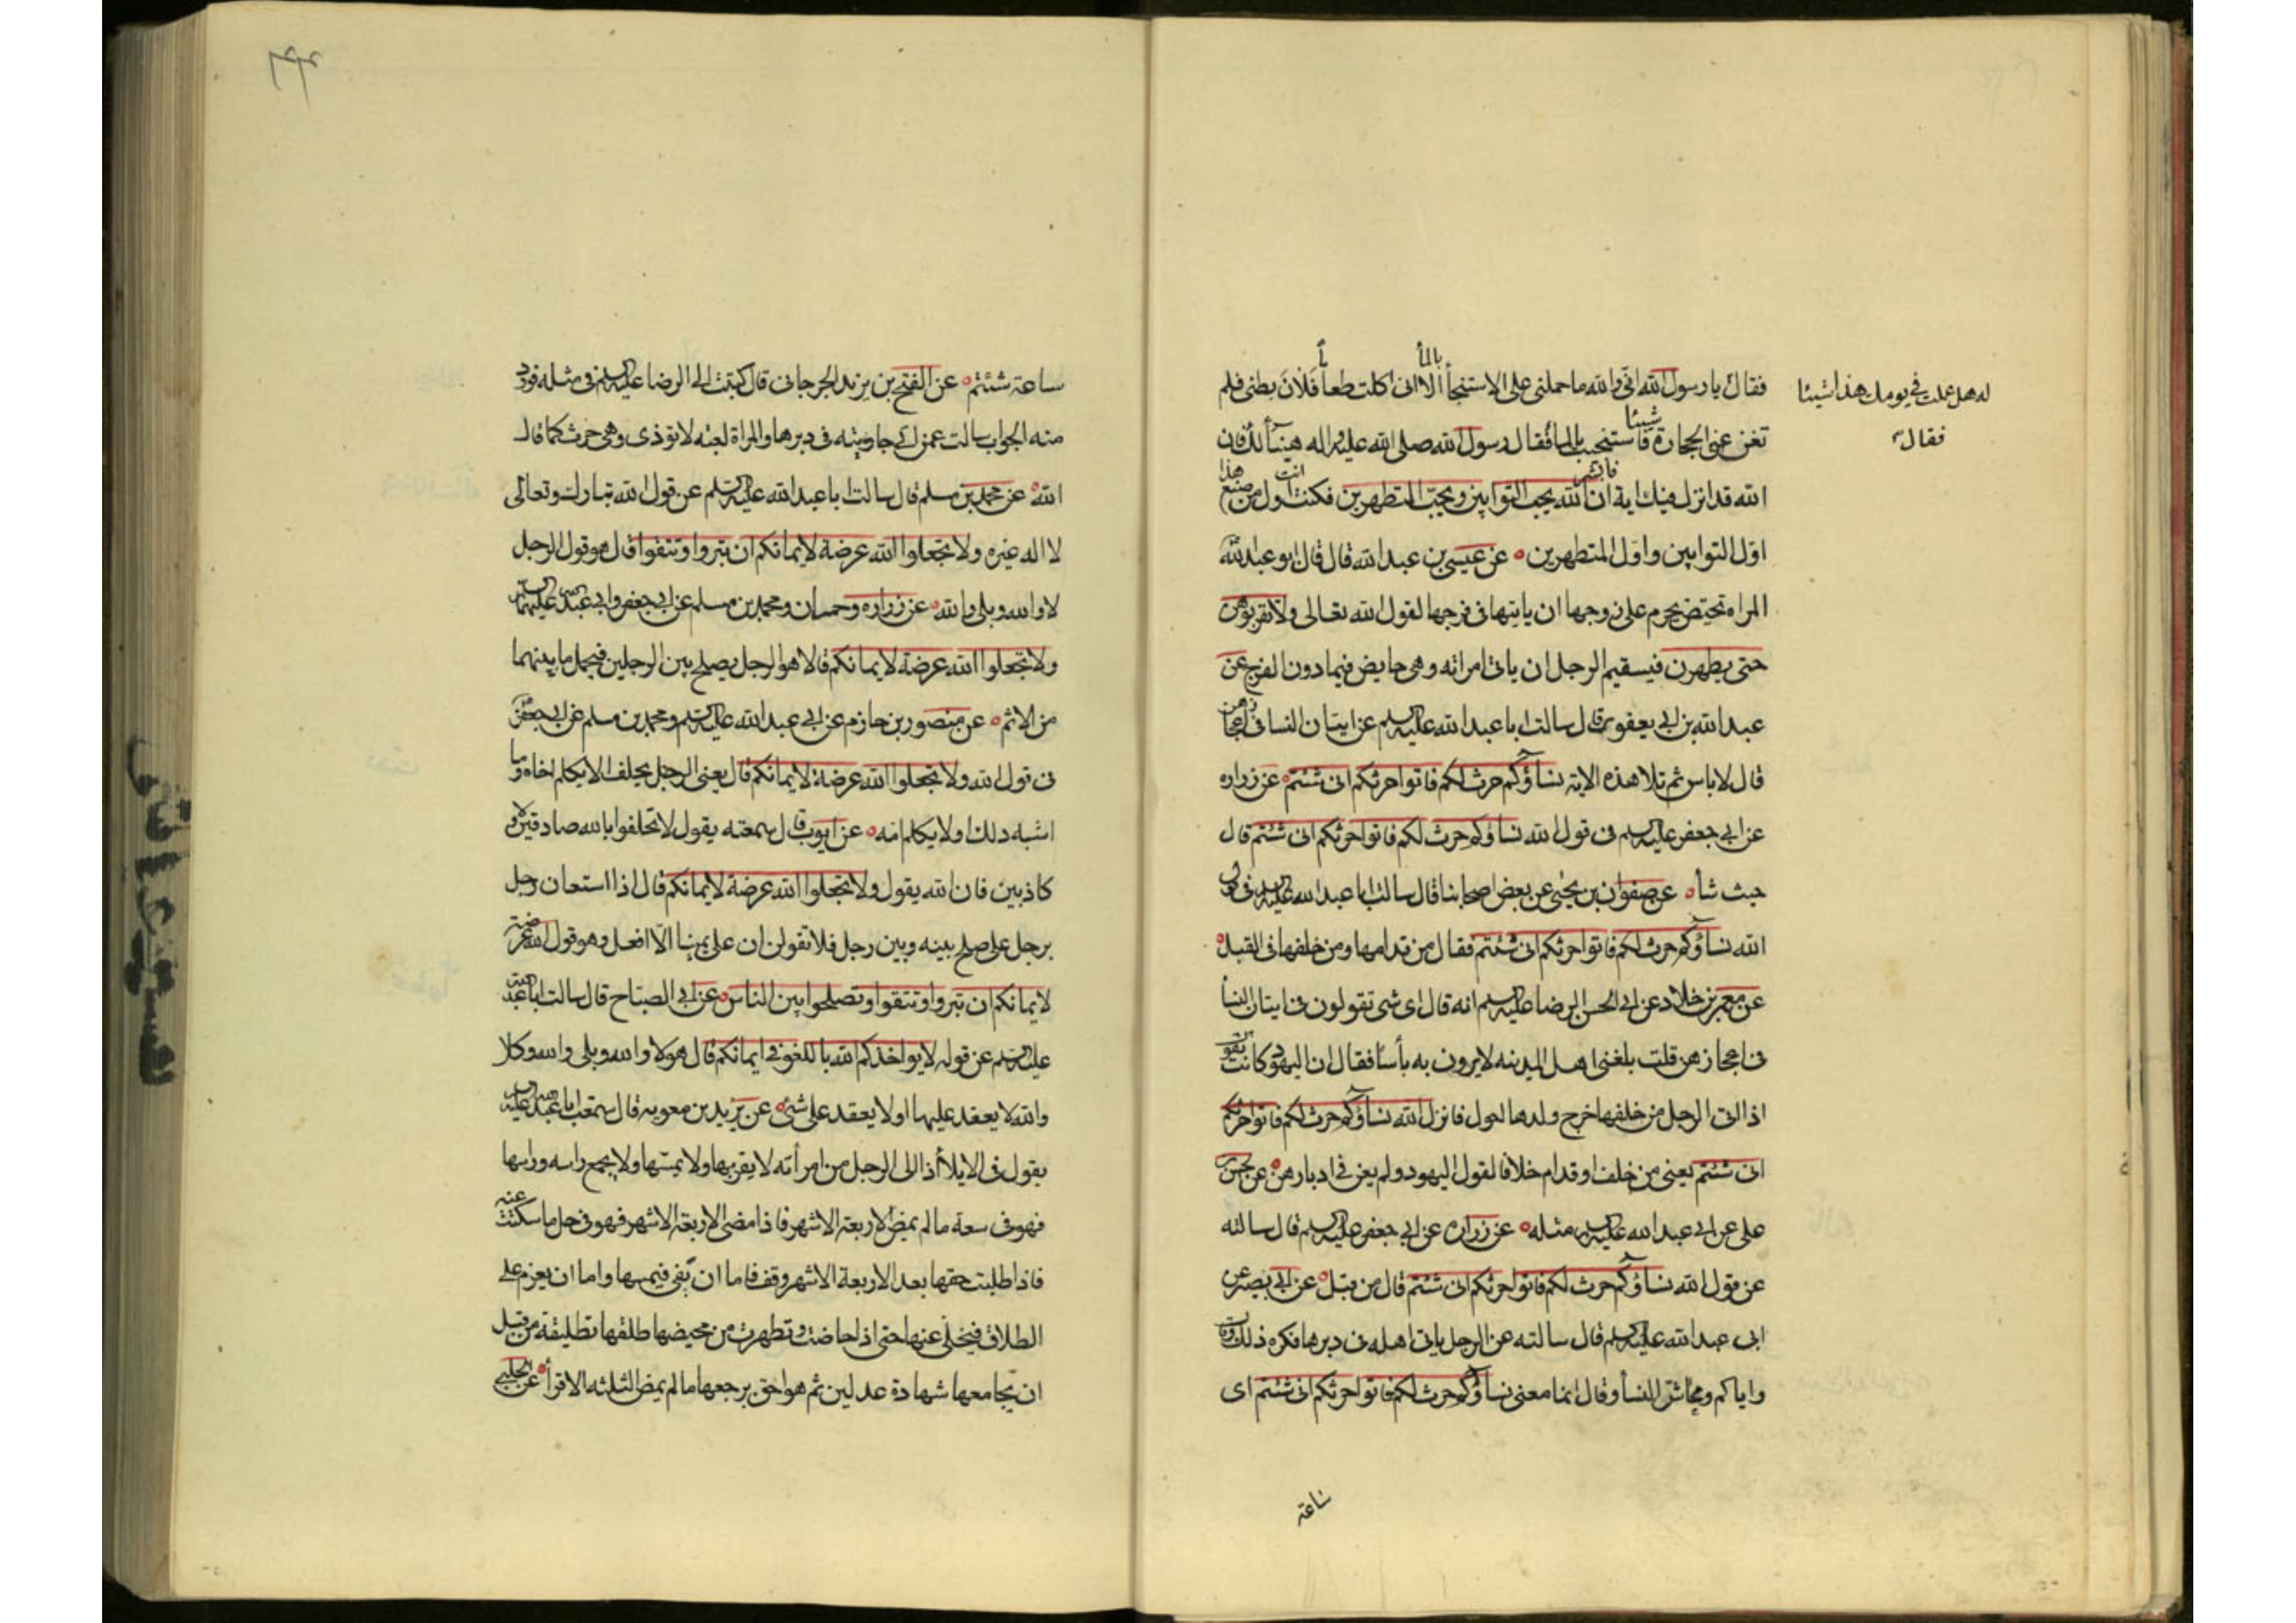 له هل عملت في يومك هذا شيئا
فقال
فقال يا رسول الله انى والله ما حملنى على الاستنجأ بالمأ الا انى اكلت طعاما فلان بطنى فلم
تغن عنى الحجارة شيئا فاستنجيت بالمأ فقال رسول الله صلى الله عليه واله هنيأ لك فان
الله قد انزل فيك اية فابشر ان الله يحب التوابين ويحب المتطهرين فكنت انت اول من صنع هذا
اول التوابين واول المتطهرين عن عيسى بن عبد الله قال قال ابو عبد الله
المراه تحيض يحرم على زوجها ان ياتيها فى فرجها لقول الله تعالى ولا تقربوهن
حتى يطهرن فيستقيم الرجل ان ياتى امراته وهى حايض فيما دون الفرج عن
عبد الله بن ابى يعفور قال سالت ابا عبد الله عليه السلم عن اتيان النسا فى اعجازهن
قال لا باس ثم تلا هذه الاية نساؤكم حرث لكم فاتوا حرثكم انى شئتم عن زراره
عن ابى جعفر عليه السلم فى قول الله نساؤكم حرث لكم فاتوا حرثكم انى شئتم قال
حيث شأ عن صفوان بن يحيى عن بعض اصحابنا قال سالت ابا عبد الله عليه السلم فى قول
الله نساؤكم حرث لكم فاتوا حرثكم انى شئتم فقال من قدامها ومن خلفها فى القبل
عن معمر بن خلاد عن ابى الحسن الرضا عليه السلم انه قال اى شى تقولون فى اتيان النسأ
فى اعجازهن قلت بلغنى اهل المدينه لا يرون به بأسا فقال ان اليهود كانت تقول
اذا اتى الرجل من خلفها خرج ولدها احول فانزل الله نساؤكم حرث لكم فاتوا حرثكم
انى شئتم يعنى من خلف او قدام خلافا لقول اليهود ولم يعن فى ادبارهن عن حسن بن
على عن ابى عبد الله عليه السلم مثله عن زراره عن ابى جعفر عليه السلم قال سالته
عن قول الله نساؤكم حرث لكم فاتوا حرثكم انى شئتم قال من قبل عن ابى بصير عن
ابى عبد الله عليه السلم قال سالته عن الرجل ياتى اهله فى دبرها فكره ذلك وقال
واياكم ومحاش النسأ وقال انما معنى نساؤكم حرث لكم فاتوا حرثكم انى شئتم اى
ساعة
ساعة شئتم عن الفتح بن يزيد الجرجانى قال كتبت الى الرضا عليه السلم فى مثله فورد
منه الجواب سالت عمن اتى جاريته فى دبرها والمراة لعبه لا توذى وهى حرث كما قال
الله عن محمد بن مسلم قال سالت ابا عبد الله عليه السلم عن قول الله تبارك وتعالى
لا اله غيره ولا تجعلوا الله عرضة لايمانكم ان تبروا وتتقوا قال هو قول الرجل
لا والله وبلى والله عن زراره وحمران ومحمد بن مسلم عن ابى جعفر وابى عبد الله عليهما السلم
ولا تجعلوا الله عرضة لايمانكم قالا هو الرجل يصلح بين الرجلين فيحمل ما بينهما
من الاثم عن منصور بن حازم عن ابى عبد الله عليه السلم ومحمد بن مسلم عن ابى جعفر
فى قول الله ولا تجعلوا الله عرضة لايمانكم قال يعنى الرجل يحلف الا يكلم اخاه وما
اشبه ذلك او لا يكلم امه عن ايوب قال سمعته يقول لا تحلفوا بالله صادقين ولا
كاذبين فان الله يقول ولا تجعلوا الله عرضة لايمانكم قال اذا استعان رجل
برجل على صلح بينه وبين رجل فلا تقولن ان على يمينا الا افعل وهو قول الله عرضة
لايمانكم ان تبروا وتتقوا وتصلحوا بين الناس عن ابى الصباح قال سالت ابا عبد الله
عليه السلم عن قوله لا يواخذكم الله باللغو فى ايمانكم قال هو لا والله وبلى والله وكلا
والله لا يعقد عليها او لا يعقد على شئ عن بريد بن معويه قال سمعت ابا عبد الله عليه السلم
يقول فى الايلأ اذا الى الرجل من امرأته لا يقربها ولا يمسها ولا يجمع راسه وراسها
فهو فى سعة ما لم يمض الاربعة الاشهر فاذا مضى الاربعة الاشهر فهو فى حل ما سكتت عنه
فاذا طلبت حقها بعد الاربعة الاشهر وقف فاما ان يفى فيمسها واما ان يعزم على
الطلاق فيخلى عنها حتى اذا حاضت وتطهرت من محيضها طلقها تطليقة من قبل
ان يجامعها شهادة عدلين ثم هو احق برجعها ما لم يمض الثلثه الاقرأ عن الحلبى